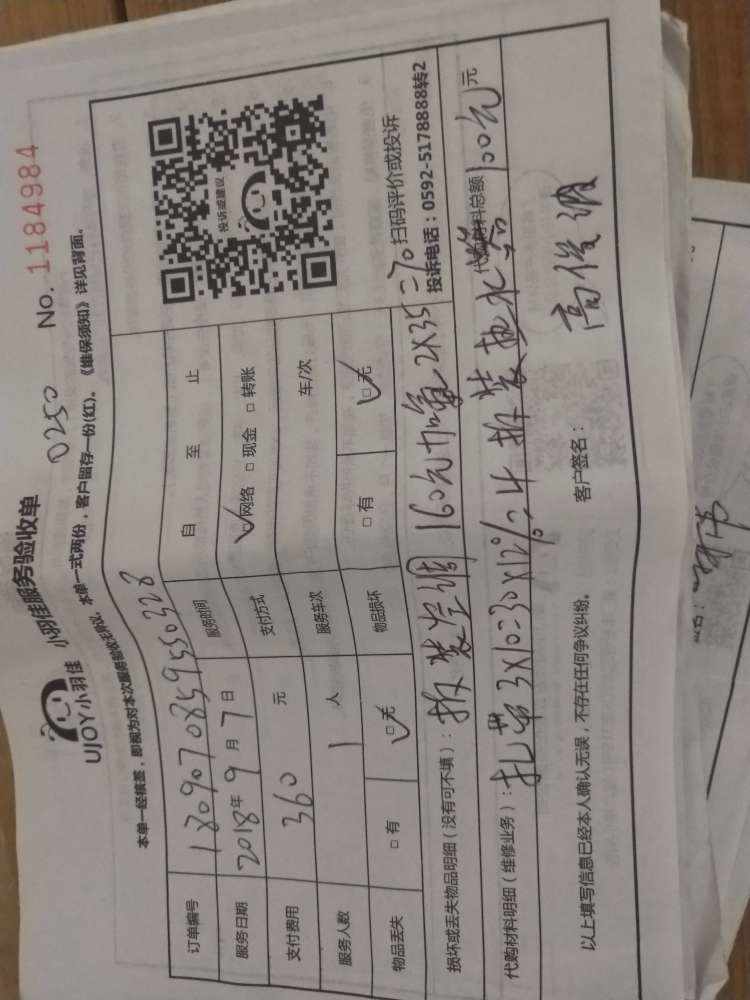 小羽佳服务验收单
UJOY小羽佳
No. 1184984
0250
本单一式两份，客户留存一份(红)。《维保须知》详见背面。
本单一经核签，即视为对本次服务验收无异议。
订单编号 1809070859550328
服务日期 2018年9月7日 服务时间 自 至 止
支付费用 360 元 支付方式 ☑网络 □现金 □转账
服务人数 1 人 服务车次 车/次
物品丢失 □有 ☑无 物品损坏 □有 ☑无
投诉或建议
扫码评价或投诉
投诉电话：0592-5178888转2
损坏或丢失物品明细（没有可不填）：拆装空调160元加氟2X35=70
代购材料明细（维修业务）：孔 3X10=30X12%=4拆装热水器100元
代购材料总额 元
以上填写信息已经本人确认无误，不存在任何争议纠纷。
客户签名：高俊波